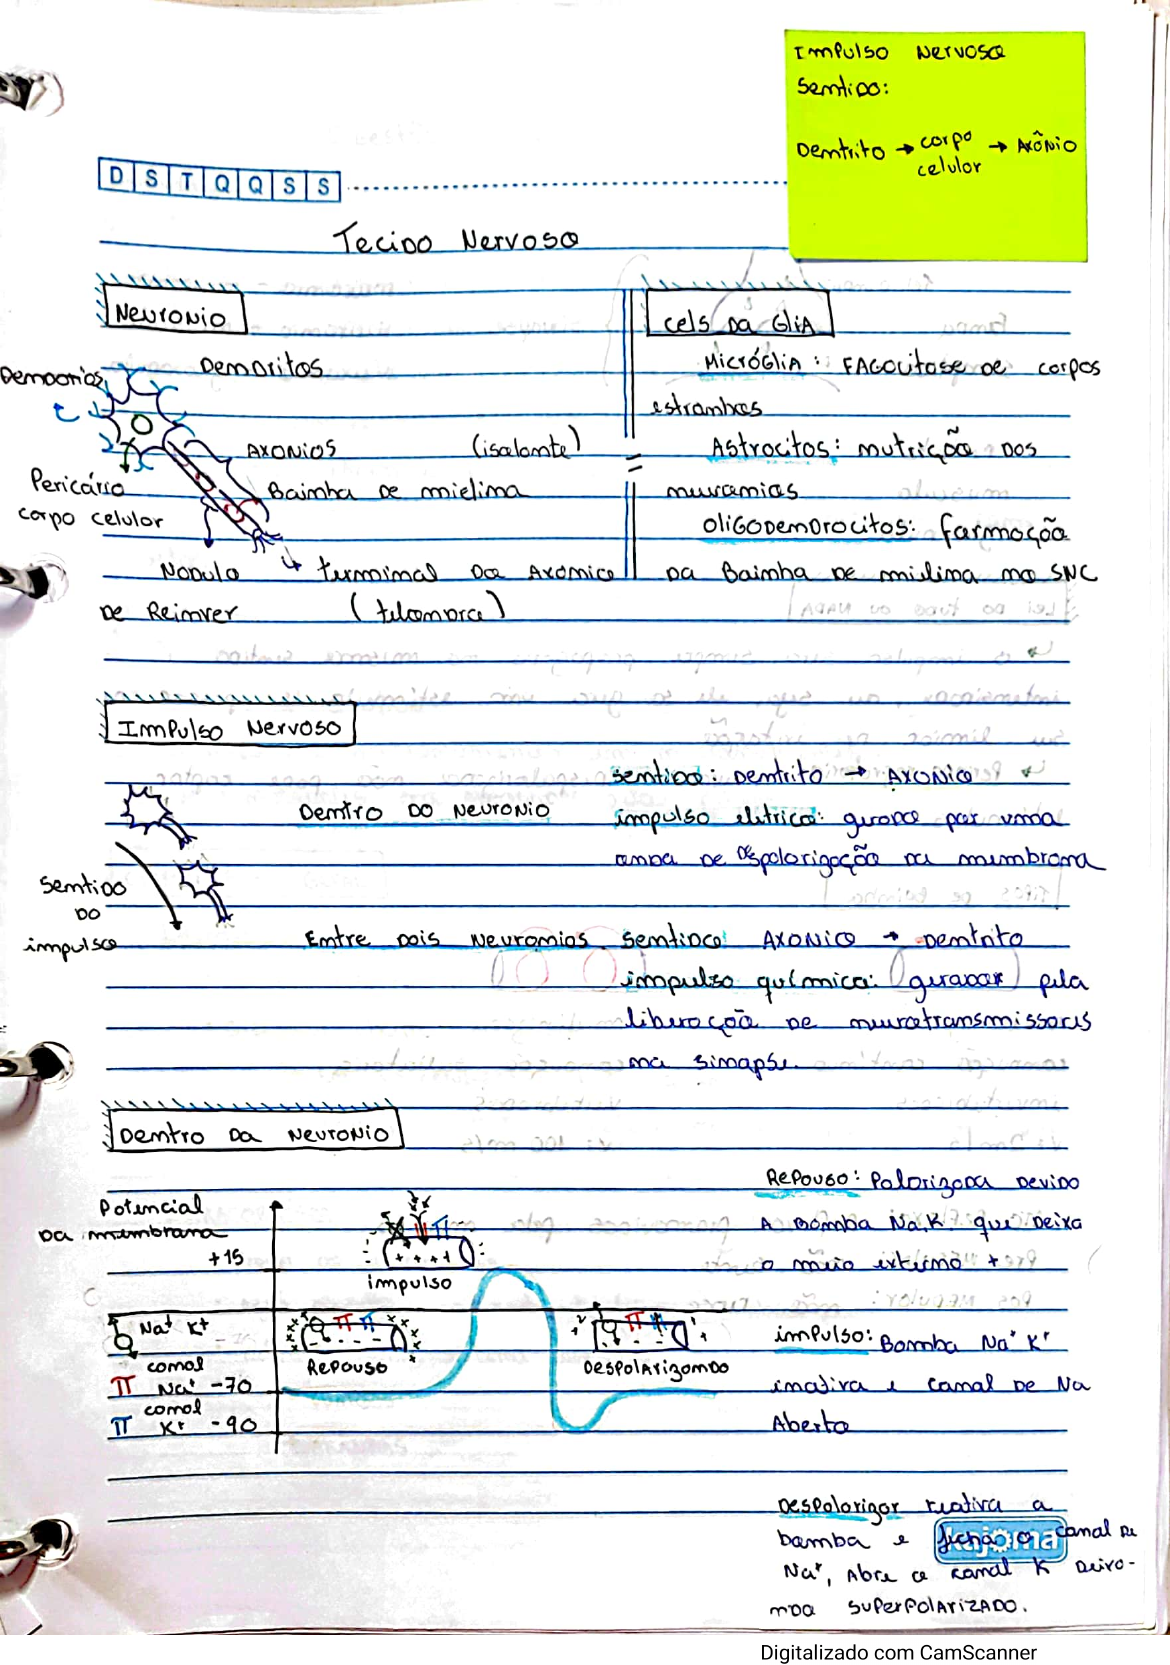 Impulso Nervoso
Sentido:
Dentrito → corpo celular → Axônio
D S T Q Q S S
Tecido Nervoso
Neuronio
Dendritos
Axonios (isolante)
Bainha de mielina
corpo celular
Nodulo
de Reinver
↳ terminal do Axonico
(telondria)
Cels da Glia
Micróglia: Fagocitose de corpos
estranhos
Astrocitos: nutrição dos
neuronios
Oligodendrocitos: formação
da Bainha de mielina no SNC
Impulso Nervoso
Sentido
do
impulso
Dentro do Neuronio
sentido: Dentrito → Axonico
impulso eletrico: gerado por uma
onda de despolarização da membrana
Entre dois Neuronios
sentido: Axonico → Dentrito
impulso químico: gerador pela
liberação de neurotransmissores
na sinapse.
Dentro da Neuronio
Potencial
da membrana
+15
impulso
Na⁺ K⁺
canal
Na⁺ -70
canal
K⁺ -90
Repouso
Despolarizando
Repouso: Polarizada devido
A Bomba Na,K, que deixa
o meio externo +
impulso: Bomba Na⁺ K⁺
inativa e canal de Na
Aberto
Despolarizar reativa a
bomba e fecha o canal de
Na⁺, Abre o canal K deixa-
ndo superpolarizado.
kajoma
Digitalizado com CamScanner